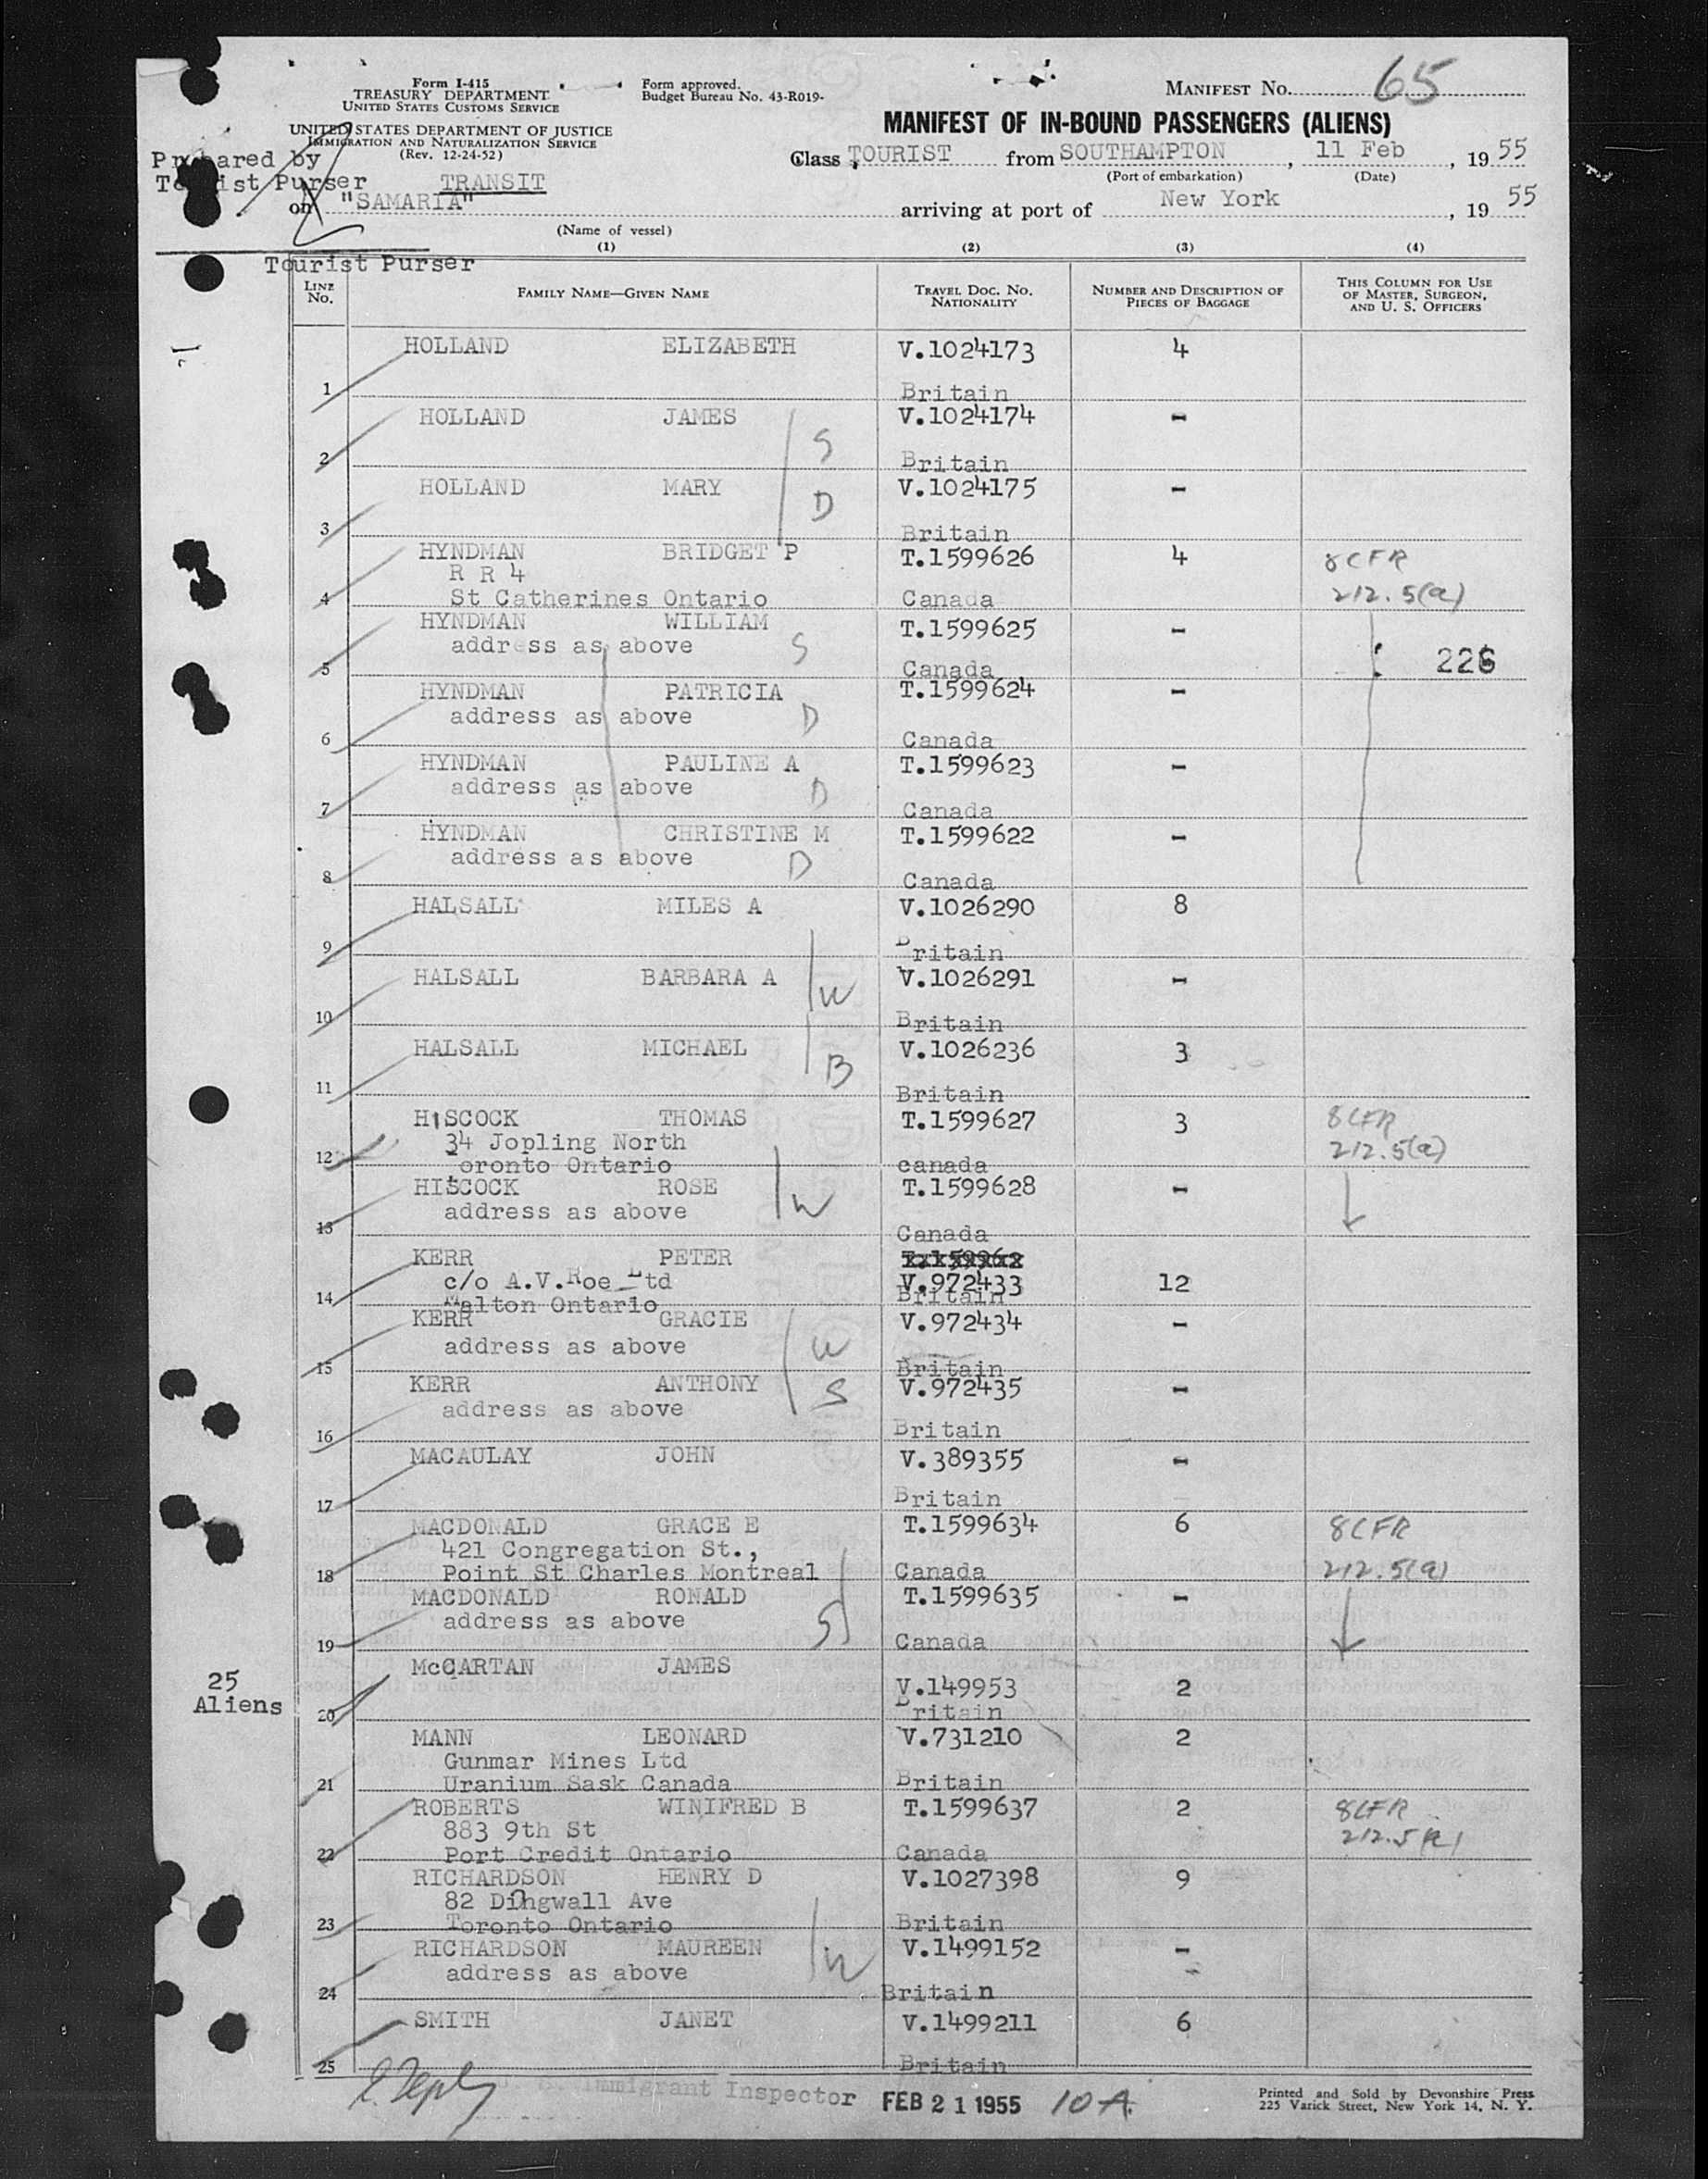 Form I-415
TREASURY DEPARTMENT
UNITED STATES CUSTOMS SERVICE
Form approved.
Budget Bureau No. 43-R019-
MANIFEST No. 65
UNITED STATES DEPARTMENT OF JUSTICE
IMMIGRATION AND NATURALIZATION SERVICE
(Rev. 12-24-52)
MANIFEST OF IN-BOUND PASSENGERS (ALIENS)
Prepared by
Tourist Purser
TRANSIT
Class TOURIST from SOUTHAMPTON, 11 Feb, 19 55
(Port of embarkation) (Date)
on "SAMARIA" arriving at port of New York, 19 55
(Name of vessel)
(1) (2) (3) (4)
Tourist Purser
LINE No. FAMILY NAME—GIVEN NAME TRAVEL DOC. NO. NATIONALITY NUMBER AND DESCRIPTION OF PIECES OF BAGGAGE THIS COLUMN FOR USE OF MASTER, SURGEON, AND U. S. OFFICERS
HOLLAND ELIZABETH V.1024173 4
1 Britain
HOLLAND JAMES V.1024174 -
2 S Britain
HOLLAND MARY V.1024175 -
3 D Britain
HYNDMAN BRIDGET P T.1599626 4 8 CFR
R R 4
4 St Catherines Ontario Canada 212.5(a)
HYNDMAN WILLIAM T.1599625 -
address as above S 226
5 Canada
HYNDMAN PATRICIA T.1599624 -
address as above D
6 Canada
HYNDMAN PAULINE A T.1599623 -
address as above D
7 Canada
HYNDMAN CHRISTINE M T.1599622 -
address as above D
8 Canada
HALSALL MILES A V.1026290 8
9 Britain
HALSALL BARBARA A V.1026291 -
10 W Britain
HALSALL MICHAEL V.1026236 3
11 B Britain
HISCOCK THOMAS T.1599627 3 8 CFR
34 Jopling North 212.5(a)
12 Toronto Ontario canada
HISCOCK ROSE T.1599628 -
address as above W
13 Canada
KERR PETER
c/o A.V.Roe Ltd V.972433 12
14 Malton Ontario Britain
KERR GRACIE V.972434 -
address as above W
15 Britain
KERR ANTHONY V.972435 -
address as above S
16 Britain
MACAULAY JOHN V.389355 -
17 Britain
MACDONALD GRACE E T.1599634 6 8 CFR
421 Congregation St.,
18 Point St Charles Montreal Canada 212.5(a)
MACDONALD RONALD T.1599635 -
address as above S
19 Canada
McCARTAN JAMES
25
Aliens
V.149953 2
20 Britain
MANN LEONARD V.731210 2
Gunmar Mines Ltd
21 Uranium Sask Canada Britain
ROBERTS WINIFRED B T.1599637 2 8 CFR
883 9th St 212.5(a)
22 Port Credit Ontario Canada
RICHARDSON HENRY D V.1027398 9
82 Dingwall Ave
23 Toronto Ontario Britain
RICHARDSON MAUREEN V.1499152 -
address as above W
24 Britain
SMITH JANET V.1499211 6
25 Britain
Immigrant Inspector FEB 21 1955 10 A.
Printed and Sold by Devonshire Press
225 Varick Street, New York 14, N. Y.